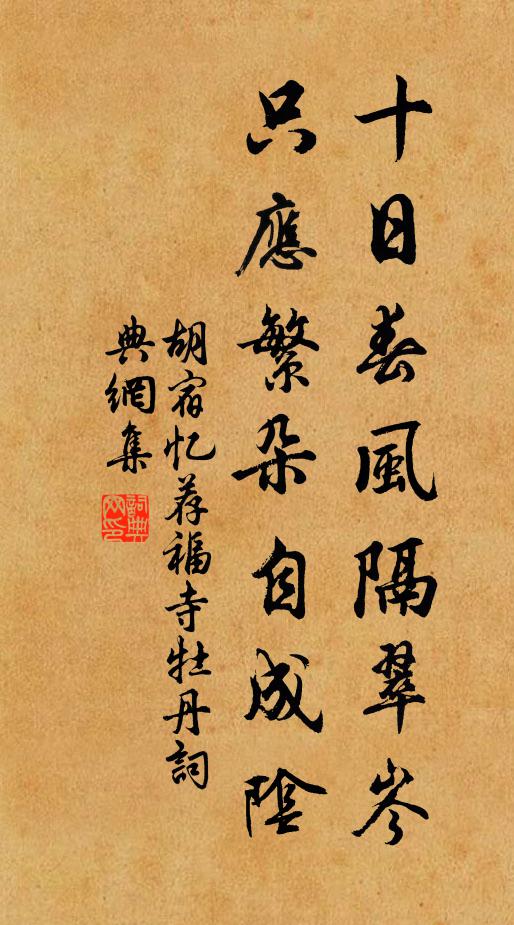 十日春風隔翠岑
只應繁朵自成陰
胡宿忆荐福寺牡丹詞
典網集
詞典网印